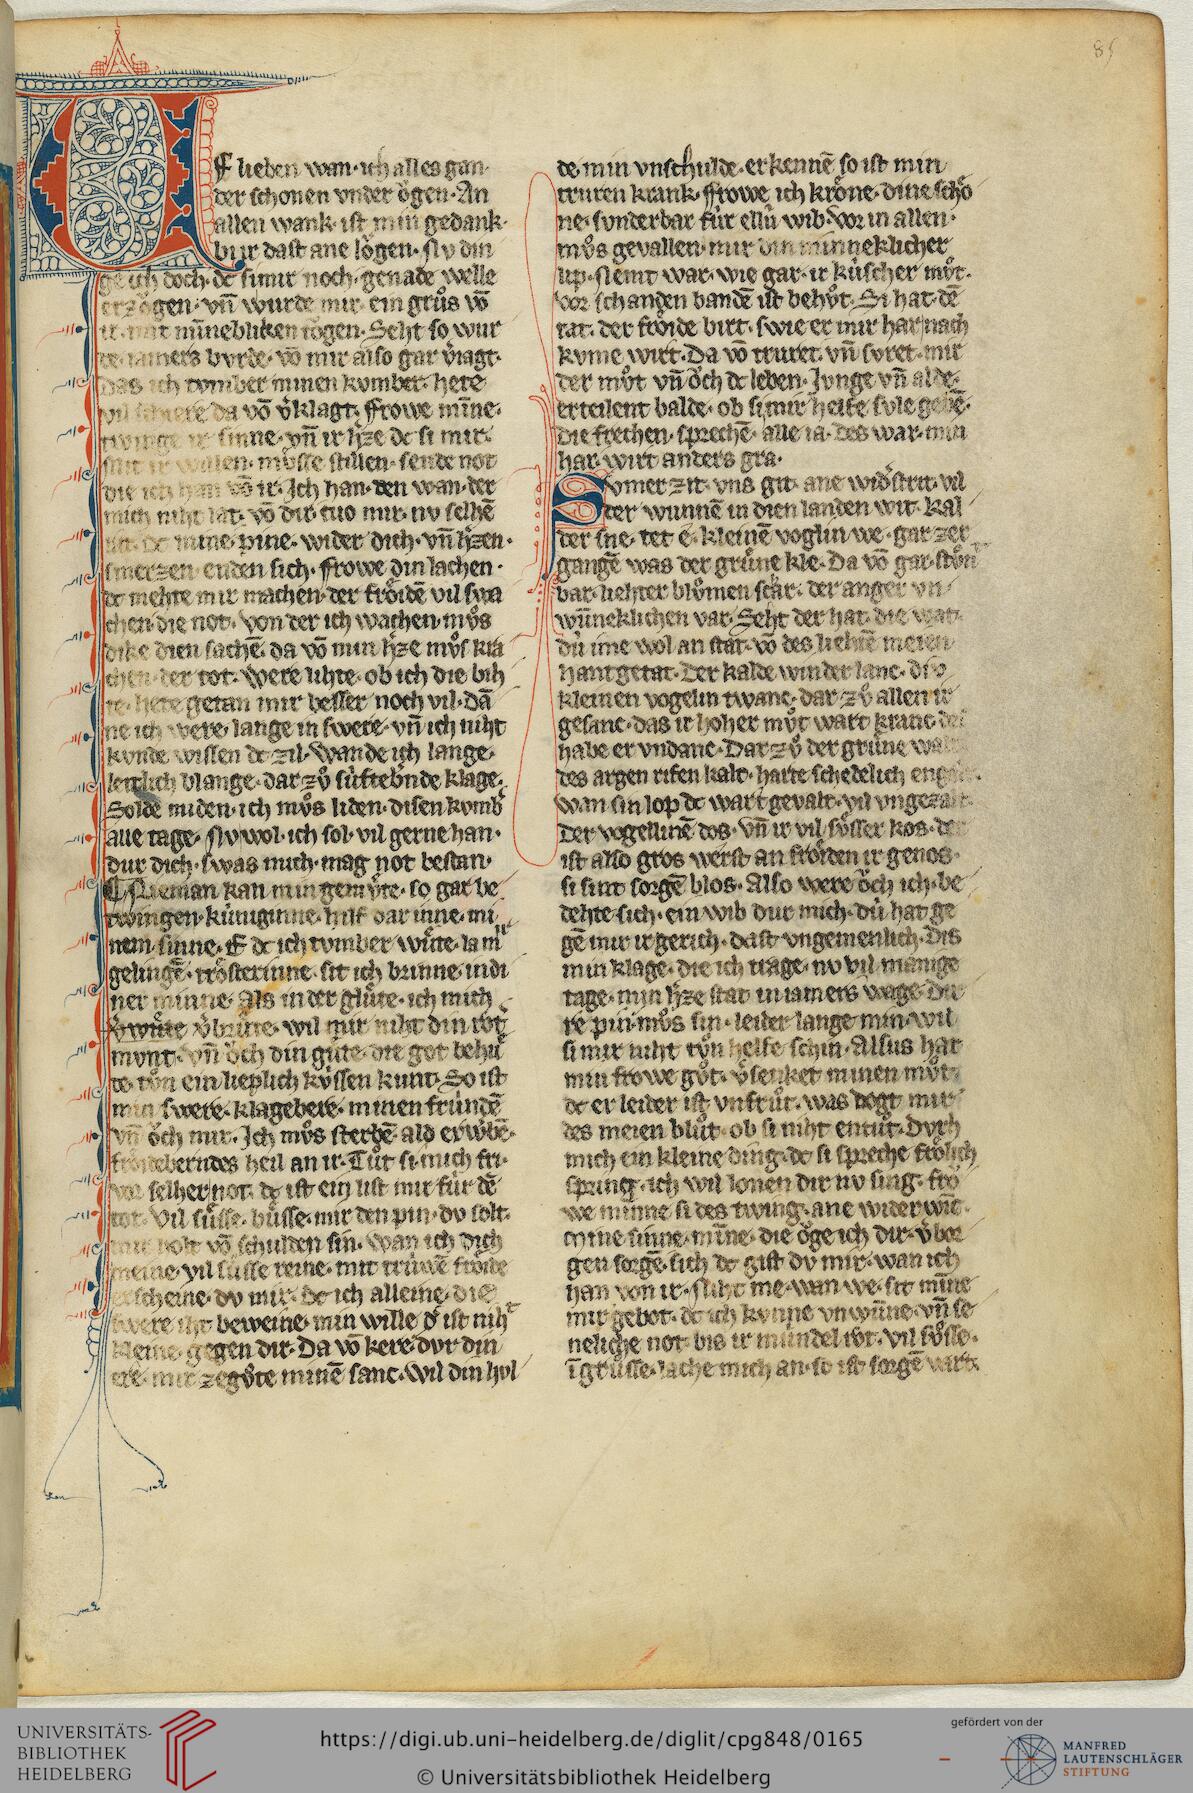 85
Uf lieben wan · ich alles gan ·
der schonen vnder ȯgen · An
allen wank · ist min gedank ·
bur dast ane lȯgen · Nv din
ge ich doch · dc si mir noch · genade welle
erzȯgen · vn̄ wurde mir · ein grůs vō
ir · mit mīneblikēn tȯgen · Seht so wur
de · iamers bvrde · vō mir also gar v̓iagt ·
das ich tvmber minen kvmber · hete
vil selwere da vō v̓klagt · Frowe mīne ·
twinge ir sinne · vn̄ ir h̓ze dc si mir ·
mit ir willen · mv̊sse stillen · sende not
die ich han vō ir · Ich han · den wan · der
mich niht lat · vō dir · tuo mir · nv selhē
rat · dc mine pine · wider dich · vn̄ h̓zen ·
smerzen · enden sich · Frowe din lachen ·
dc mehte mir machen · der frȯidē vil swa
chen die not · von der ich wachen · mv̊s
dike dien sachē · da vō min h̓ze mv̊s kra
chen · der tot · were lihte · ob ich die bih
te · hete getan mir besser noch vil · Dā
ne ich were · lange in swere · vn̄ ich niht
kvnde wissen dc zil · Wande ich lange ·
leitlich blange · dar zv̊ sv̇fteb̓nde klage ·
Solde miden · ich mv̊s liden · disen kvmb̓
alle tage · Nv wol · ich sol · vil gerne han ·
dur dich · swas mich · mag not bestan ·
Nieman kan min gemv̊te · so gar be
twingen · kv̇niginne · hilf dar inne · mi
nem sinne · E dc ich tvmber wv̊te · la mir
gelingē · trȯsterinne · sit ich brinne · in di
ner minne · Als in der glv̊te · ich mich
v̓wv̊te v̓brv̊te · wil mir niht din rot̓
mvnt · vn̄ ȯch din gv̊te · die got behv̊
te · tv̊n ein lieplich kv̇ssen kunt · So ist
min swere · klagebere · minen frv̇ndē
vn̄ ȯch mir · Ich mv̊s sterbē · ald erwb̓ē ·
frȯideberndes heil an ir · Tv̊t si mich fri ·
vor selher not · dc ist ein list mir fv̇r dē
tot · Vil sv̊sse · bv̊sse · mir den pin · dv solt ·
mir holt vō schulden sin · wan ich dich
meine · vil sv̊sse reine · mit trv̇wē frȯide
erscheine · dv mir · Dc ich alleine · die
swere iht beweine · min wille d̓ ist niht
kleine · gegen dir · Da vō kere dvr din
ere · mir zegv̊te minē sanc · Wil din hvl
de · min vnschulde · erkennē so ist min
truren krank · Frowe ich krȯne · dine schȯ
ne · svnderbar fv̇r ellv̇ wib · vor in allen ·
mv̊s gevallen · mir din minneklicher
lip · Nemt war · wie gar · ir kv̇scher mv̊t ·
vor schanden bandē ist behv̊t · Si hat · dē
rat · der frȯide birt · swie er mir har nach
kvme wirt · Da vō truret · vn̄ svret · mir
der mv̊t vn̄ ȯch dc leben · Ivnge vn̄ alde ·
erteilent balde · ob si mir helfe svle gebē ·
Die frechen · sprechē · alle ia · des war · min
har · wirt anders gra ·
Svmer zit · vns git · ane wid̓strit · vil
der wunnē in dien landen wit · kal
der sne · tet e · kleinē voglin we · gar zer
gangē was der grv̊ne kle · Da vō gar · stȯn
bar · liehter blv̊men schar · der anger vn
wv̇neklichen var · Seht der hat · die wat ·
dv̇ ime wol an stat · vō des liehtē meien ·
hantgetat · Der kalde winder lanc · div
kleinen vogelin twanc · dar zv̊ allen ir
gesanc · das ir hoher mv̊t wart kranc · des
habe er vndanc · Dar zv̊ der grv̊ne walt
des argen rifen kalt · harte schedelich engalt ·
wan sin lop dc wart gevalt · vil vngezalt ·
Der vogellinē dos · vn̄ ir vil sv̊sser kos · der
ist also gros · werst an frȯiden ir genos ·
si sint sorgē blos · Also were ȯch ich · be
dehte sich · ein wib dur mich · dv̇ hat ge
gē mir ir gerich · dast vngemenlich · Dis
min klage · die ich trage · nv vil manige
tage · min h̓ze stat in iamers wage · Dir
re pin · mv̊s sin · leider lange min · wil
si mir niht tv̊n helfe schin · Alsus hat
min frowe gv̊t · v̓senket minen mv̊t ·
dc er leider ist vnfrv̊t · was dȯgt mir
des meien blv̊t · ob si niht entv̊t · Dvrh
mich ein kleine ding · dc si spreche frȯlich
spring · ich wil lonen dir nv sing · fro
we minne si des twing · ane widerwīc ·
Mine sinne · mīne · die ȯge ich dir · v̓bor
gen sorgē · sich dc gist dv mir · wan ich
han von ir · Niht me · wan we · sit mīne
mir gebot · dc ich kvnne vnwv̇ne · vn̄ se
neliche not · bis ir mvndel rot · Vil sv̊sse ·
ī grv̊sse · lache mich an · so ist sorgē wirt
UNIVERSITÄTS-
BIBLIOTHEK
HEIDELBERG
https://digi.ub.uni-heidelberg.de/diglit/cpg848/0165
© Universitätsbibliothek Heidelberg
gefördert von der
MANFRED
LAUTENSCHLÄGER
STIFTUNG